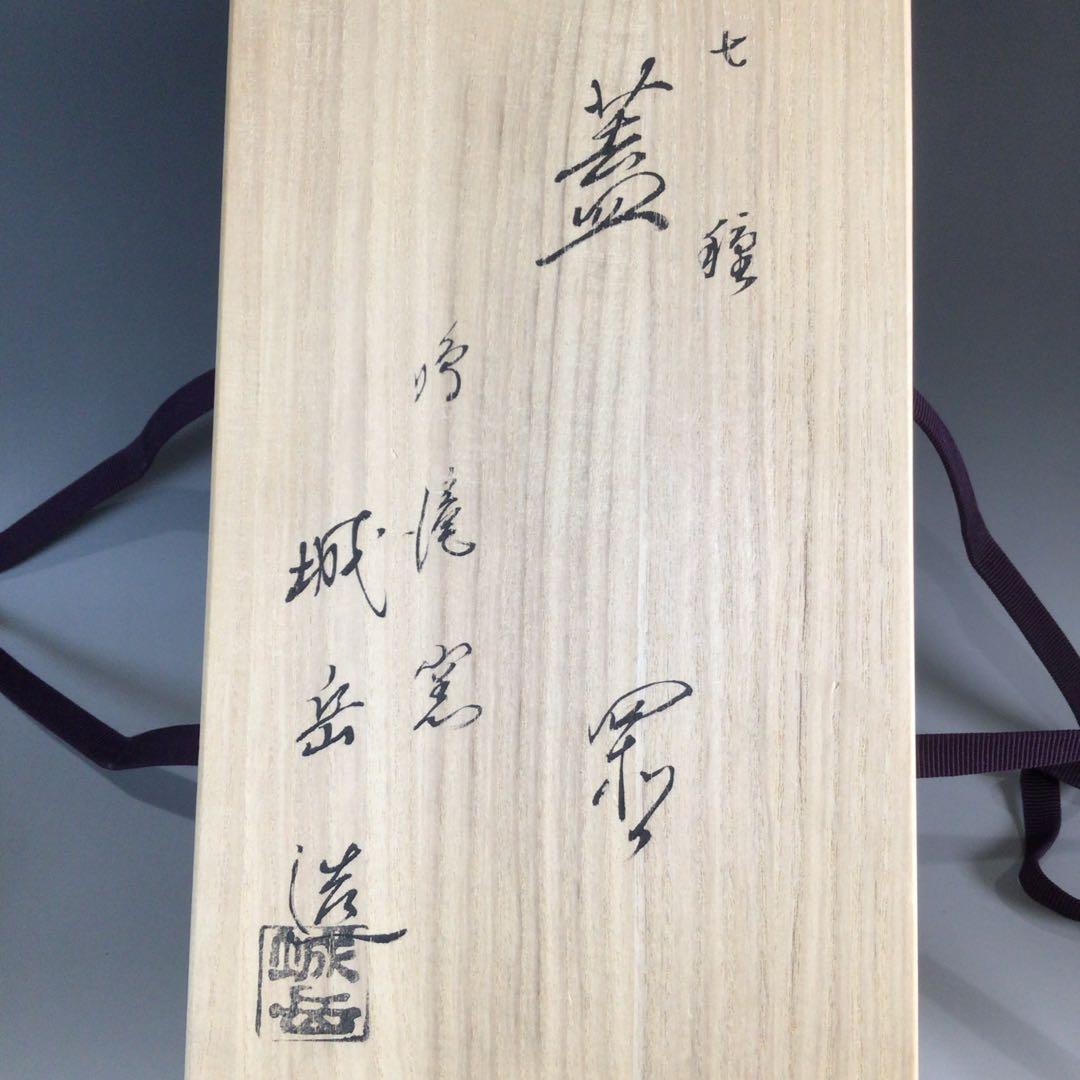 七種
蓋置
鳴滝窯
城岳造
城岳